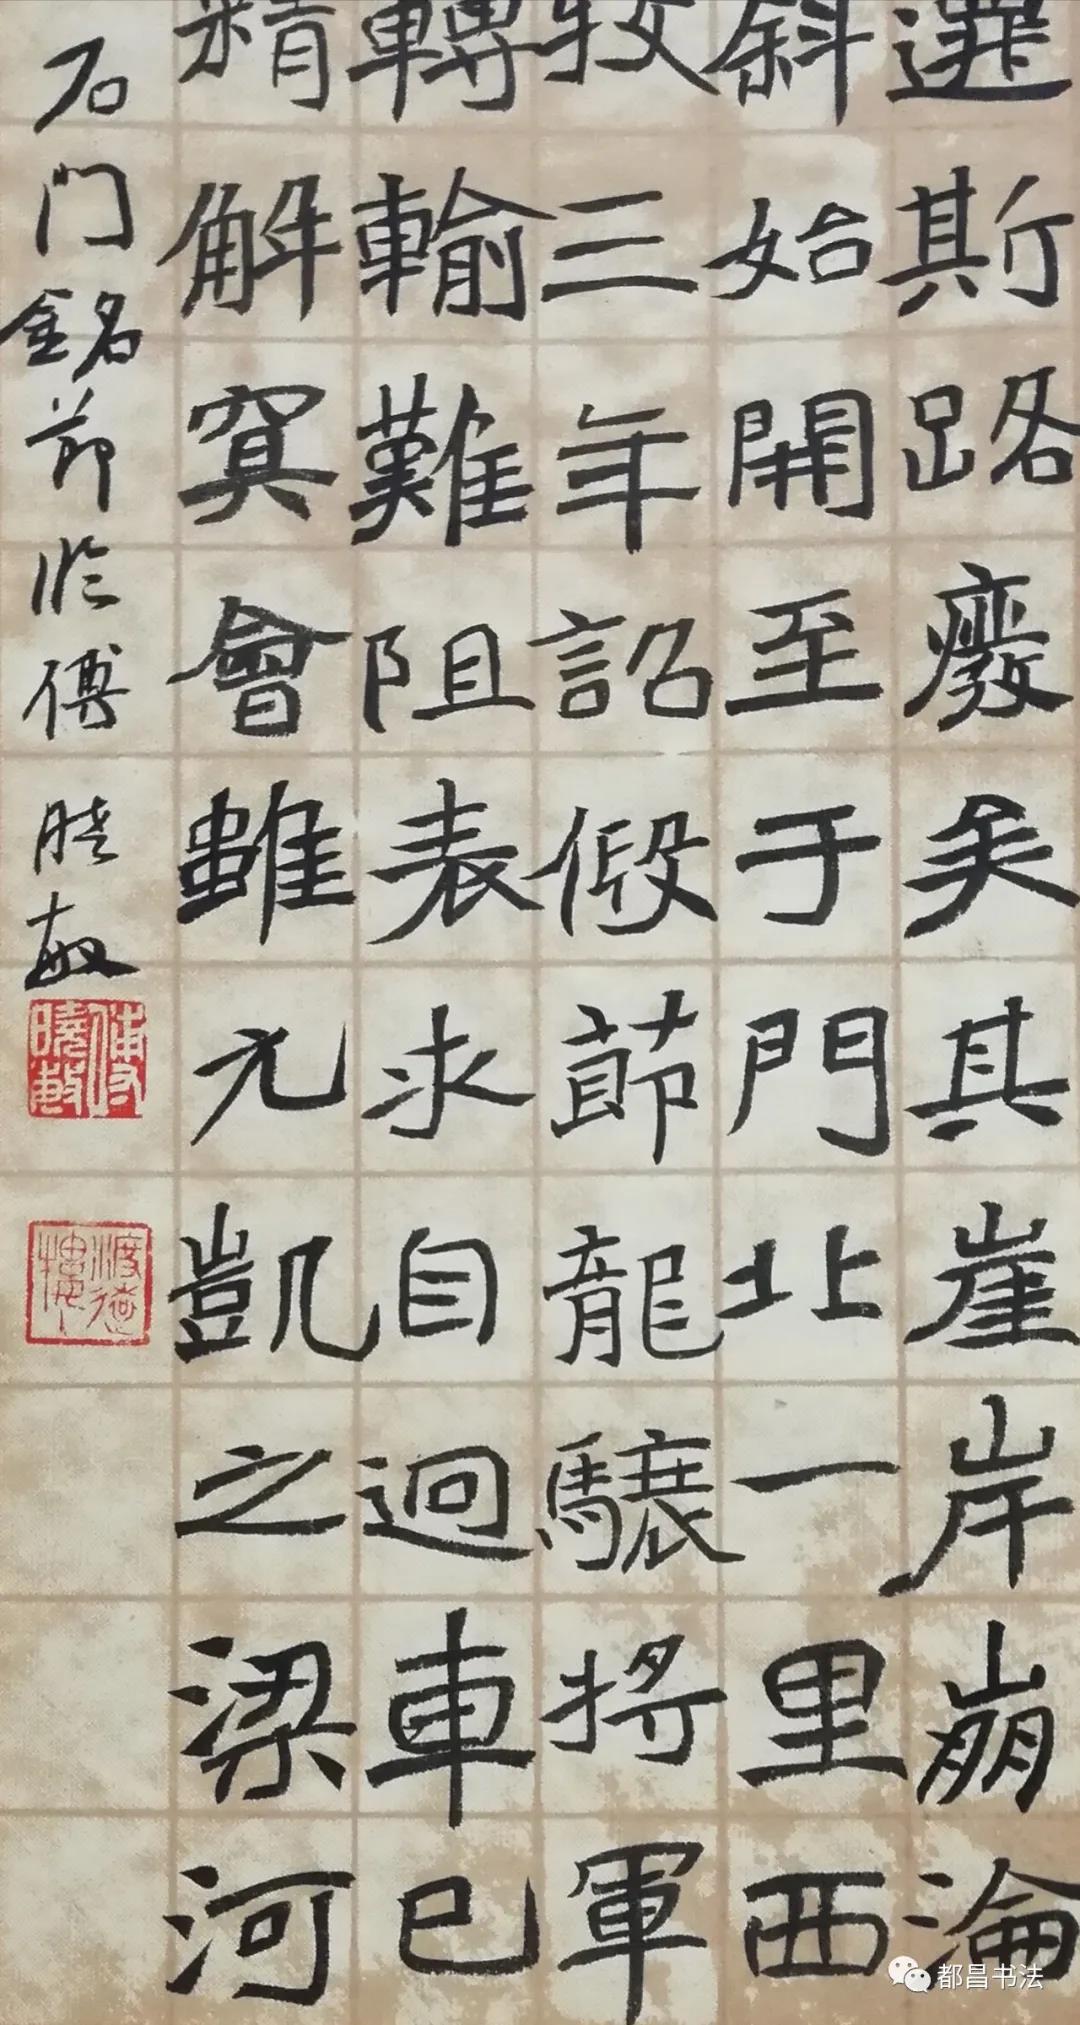 遷斯路廢矣其崖岸崩淪
斜始開至于門北一里西
牧三年詔假節龍驤將軍
轉輸難阻表求自迴車已
精解冥會雖元凱之梁河
石門銘節臨傅晓敏
傅曉敏
都昌书法